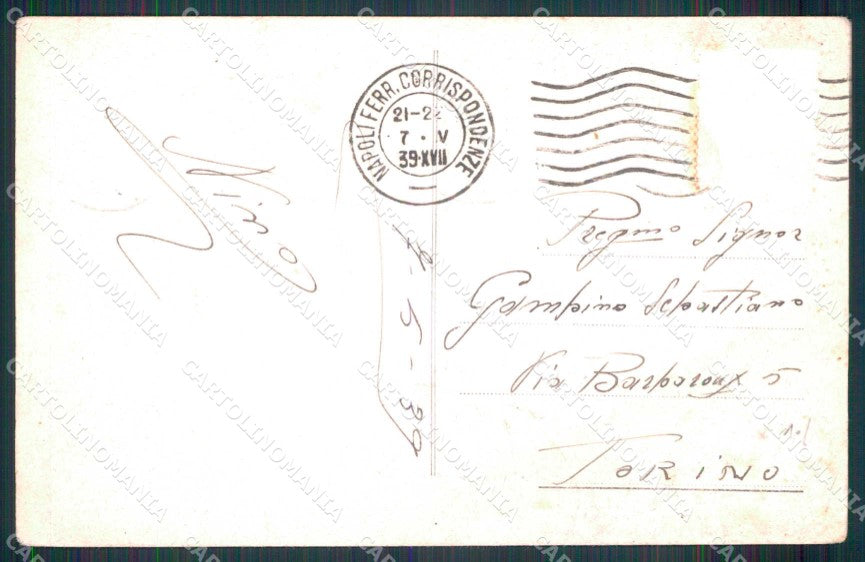 NAPOLI FERR. CORRISPONDENZE
21-22
7 · V
39·XVII
Nino
7-5-39
Pregmo Signor
Gampino Sebastiano
Via Barbaroux 5
TORINO
CARTOLINOMANIA